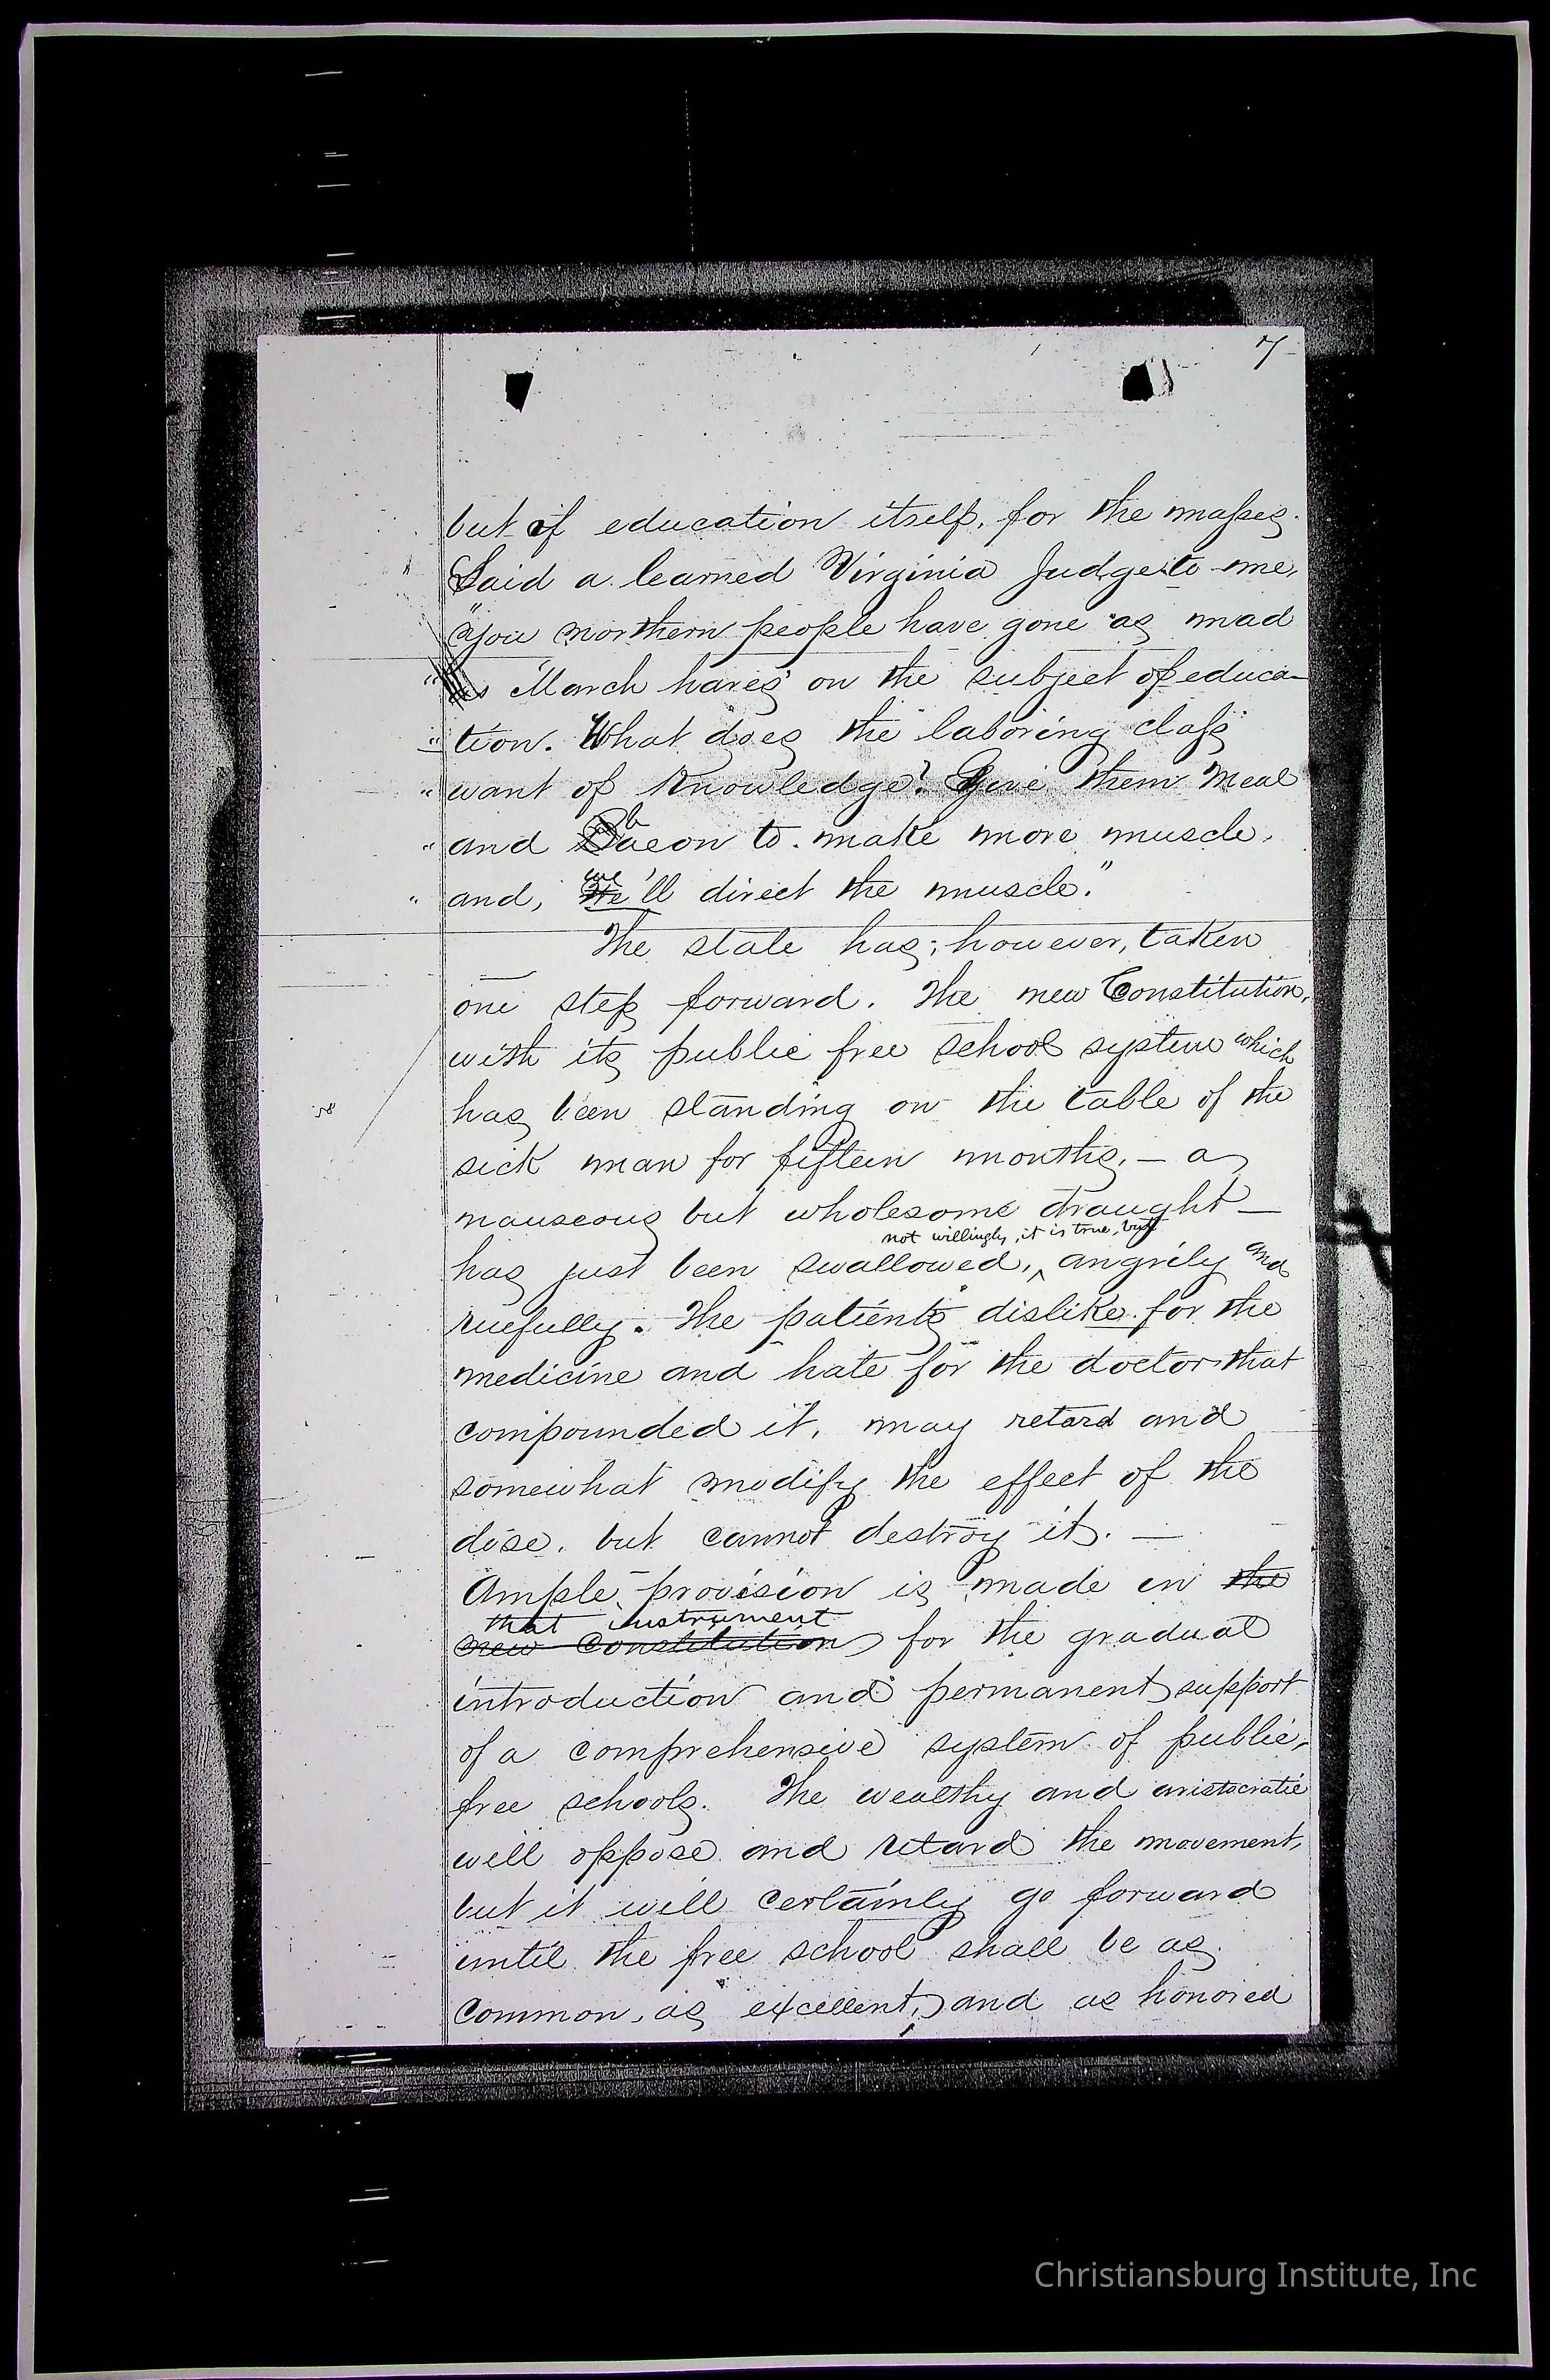 7
but of education itself, for the masses.
Said a learned Virginia Judge to me,
"You northern people have gone as mad
"as March hares on the subject of educa-
"tion. What does the laboring class
"want of Knowledge? Give them Meal
"and bacon to make more muscle,
"and, we'll direct the muscle."
The state has, however, taken
one step forward. The new Constitution,
with its public free school system which
has been standing on the table of the
sick man for fifteen months, — a
nauseous but wholesome draught —
not willingly, it is true, but
has just been swallowed, ‸ angrily and
ruefully. The patients dislike for the
medicine and hate for the doctor that
compounded it, may retard and
somewhat modify the effect of the
dose, but cannot destroy it. —
Ample provision is made in the
that instrument
new Constitution for the gradual
introduction and permanent support
of a comprehensive system of public,
free schools. The wealthy and aristocratic
will oppose and retard the movement,
but it will certainly go forward
until the free school shall be as
common, as excellent, and as honored
Christiansburg Institute, Inc